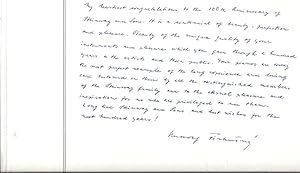 My heartiest congratulations to the 100th Anniversary of
Steinway and Sons. It is a centennial of beauty, perfection
and pleasure. Beauty of the unique quality of your
instruments and pleasure which you gave through a hundred
years to the artists and their public. Your pianos are today
the most perfect examples of the long experience and loving
care bestowed on them by all the distinguished members
of the Steinway family and to the eternal pleasure and
inspiration for us who are privileged to use them.
Long live Steinway and Sons and best wishes for the
next hundred years!
Rudolf Firkusny